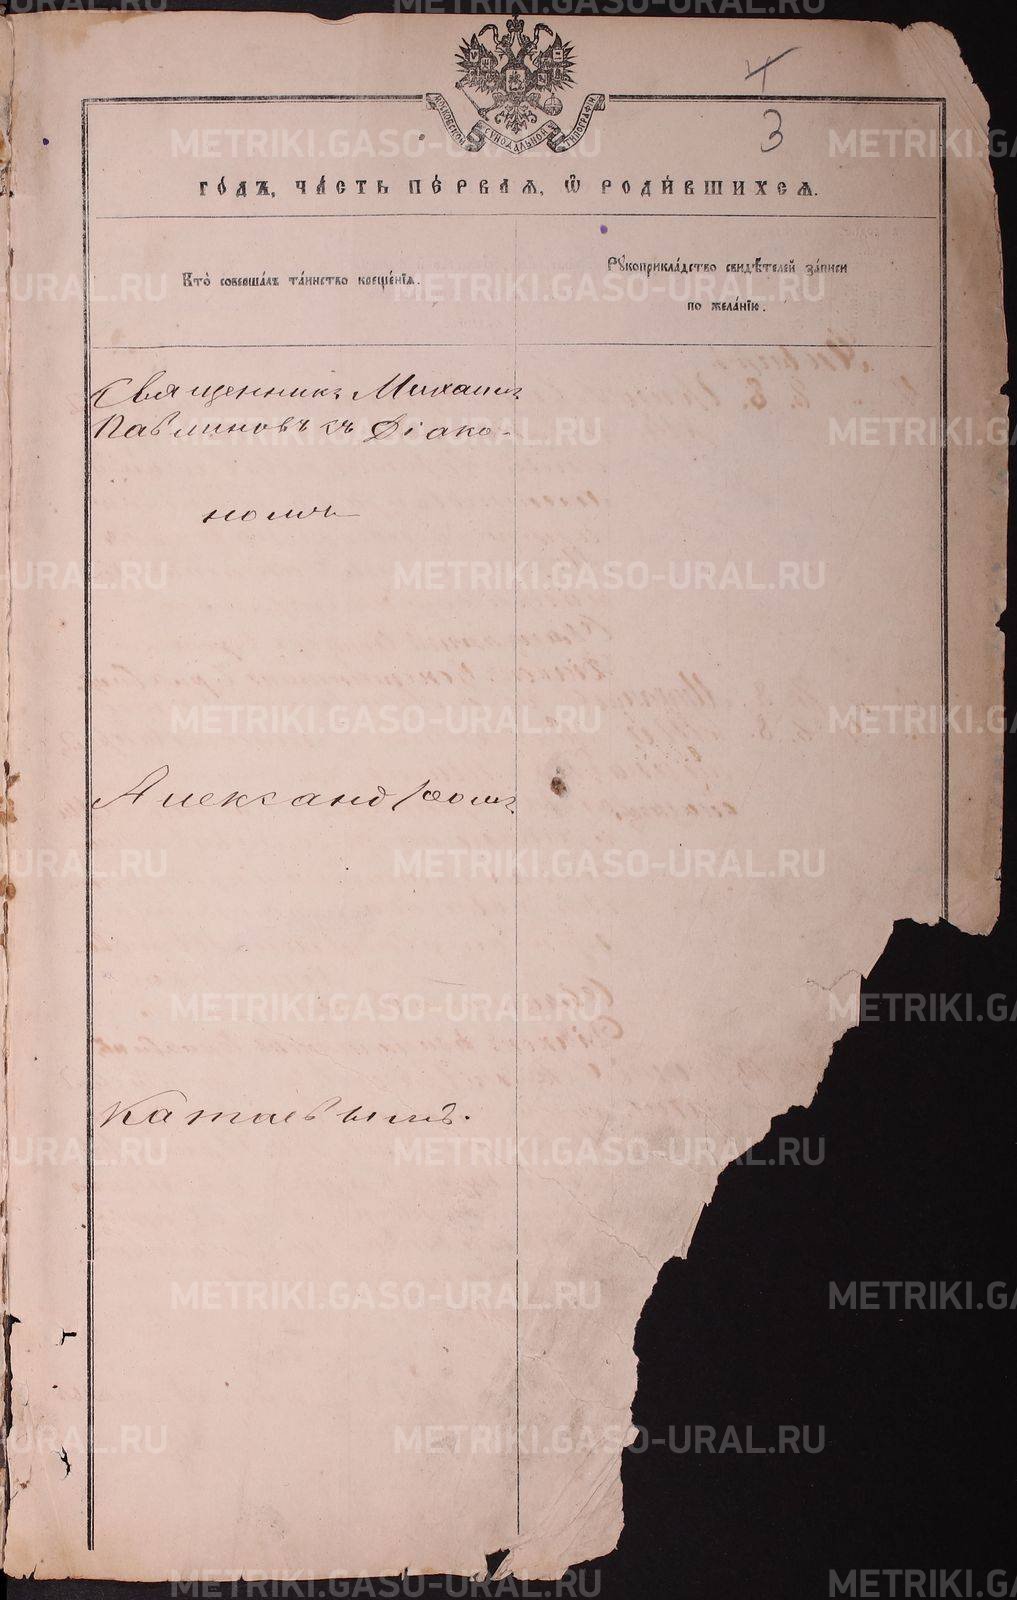 4
3
МОСКОВСКОЙ СѴНОДАЛЬНОЙ ТИПОГРАФІИ
ГО́ДЪ, ЧА́СТЬ ПЕ́РВАѦ, Ѽ РОДИ́ВШИХСѦ.
Кто̀ соверша́лъ та́инство креще́нїѧ.
Рꙋкоприкла́дство свидѣ́телей за́писи
по жела́нїю.
Священникъ Михаилъ
Павлиновъ съ Діако-
номъ
Александромъ
Катаевымъ.
METRIKI.GASO-URAL.RU